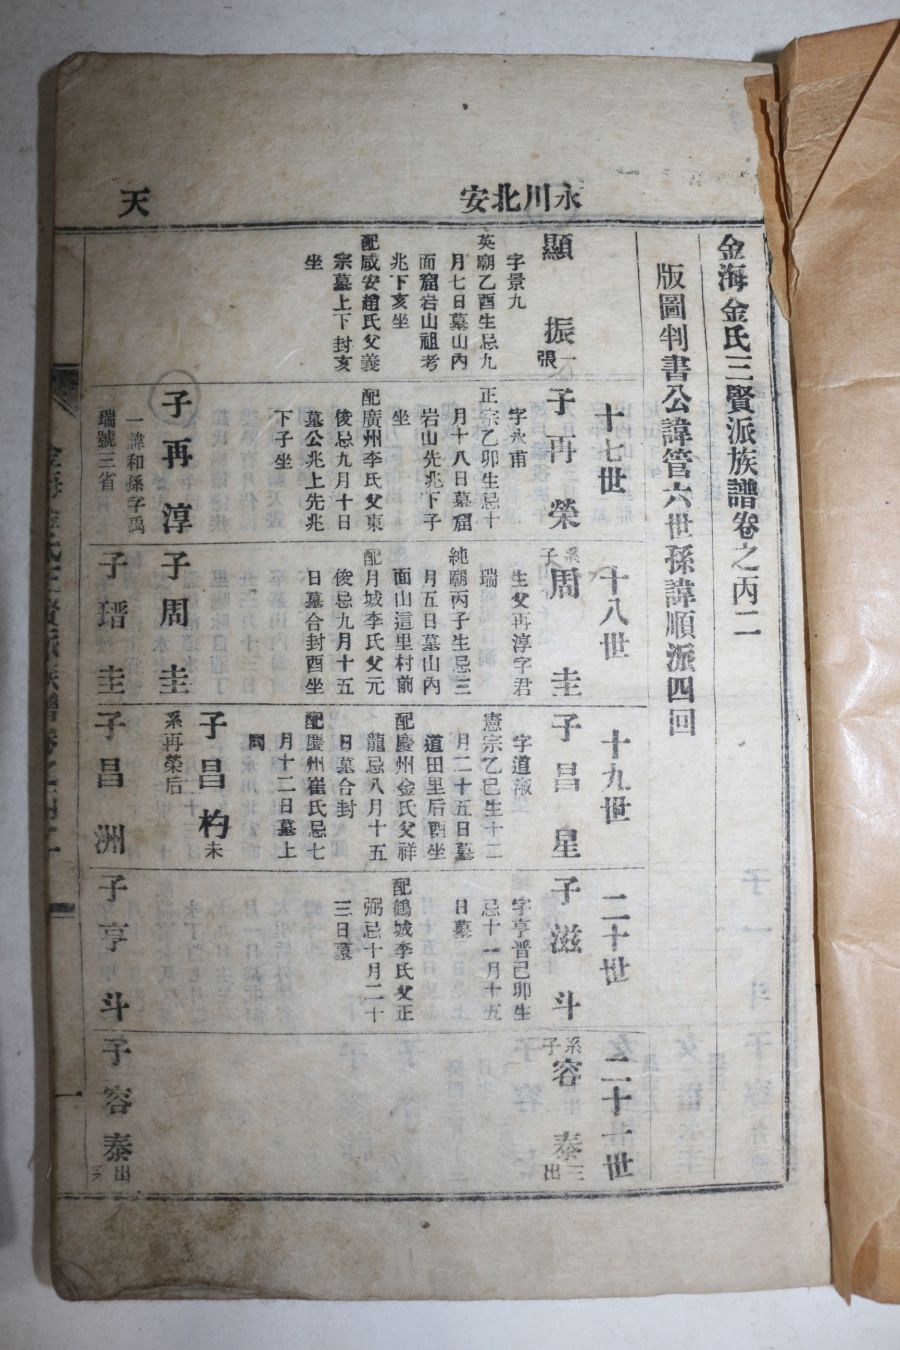 永川北安
天
金海金氏三賢派族譜卷之丙二
版圖判書公諱管六世孫諱順派四回
顯振
一張
字景九
英廟乙酉生忌九
月七日墓山內
面窟岩山祖考
兆下亥坐
配咸安趙氏父義
宗墓上下封亥
坐
十七世
子再榮
字永甫
正宗乙卯生忌十
月十八日墓窟
岩山先兆下子
坐
配廣州李氏父東
俊忌九月十日
墓公兆上先兆
下子坐
子再淳
一諱和孫字禹
瑞號三省
十八世
系子周圭
生父再淳字君
瑞
純廟丙子生忌三
月五日墓山內
面山這里村前
配月城李氏父元
俊忌九月十五
日墓合封酉坐
子周圭
子瑨圭
十九世
子昌星
字道淑
憲宗乙巳生十二
月二十五日墓
道田里后酉坐
配慶州金氏父祥
龍忌八月十五
日墓合封
配慶州崔氏忌七
月十二日墓上
同
子昌杓
未
系再榮后
子昌洲
二十世
子滋斗
字亨普己卯生
忌十一月十五
日墓
配鶴城李氏父正
弼忌十月二十
三日墓
子亨斗
二十一世
系子容泰
三出
子容泰
出系
金海金氏三賢派族譜卷之丙二
一